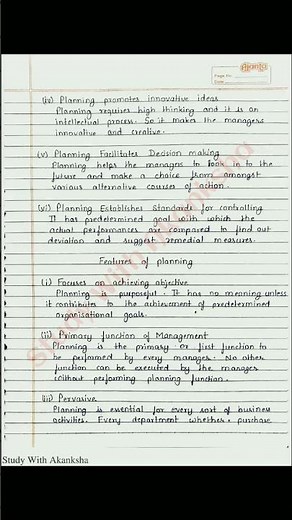 (iv) Planning promotes innovative ideas
Planning requires high thinking and it is an
intellectual process. So it makes the managers
innovative and creative.
(v) Planning Facilitates Decision making
Planning helps the managers to look in to the
future and make a choice from amongst
various alternative courses of action.
(vi) Planning Establishes Standards for controlling
It has predetermined goal with which the
actual performances are compared to find out
deviation and suggest remedial measures.
Features of planning
(i) Focuses on achieving objective
Planning is purposeful. It has no meaning unless
it contributes to the achievement of predetermined
organisational goals.
(ii) Primary function of Management
Planning is the primary or first function to
be performed by every managers. No other
function can be executed by the manager
without performing planning function.
(iii) Pervasive
Planning is essential for every sort of business
activities. Every department whether, purchase
Study With Akanksha